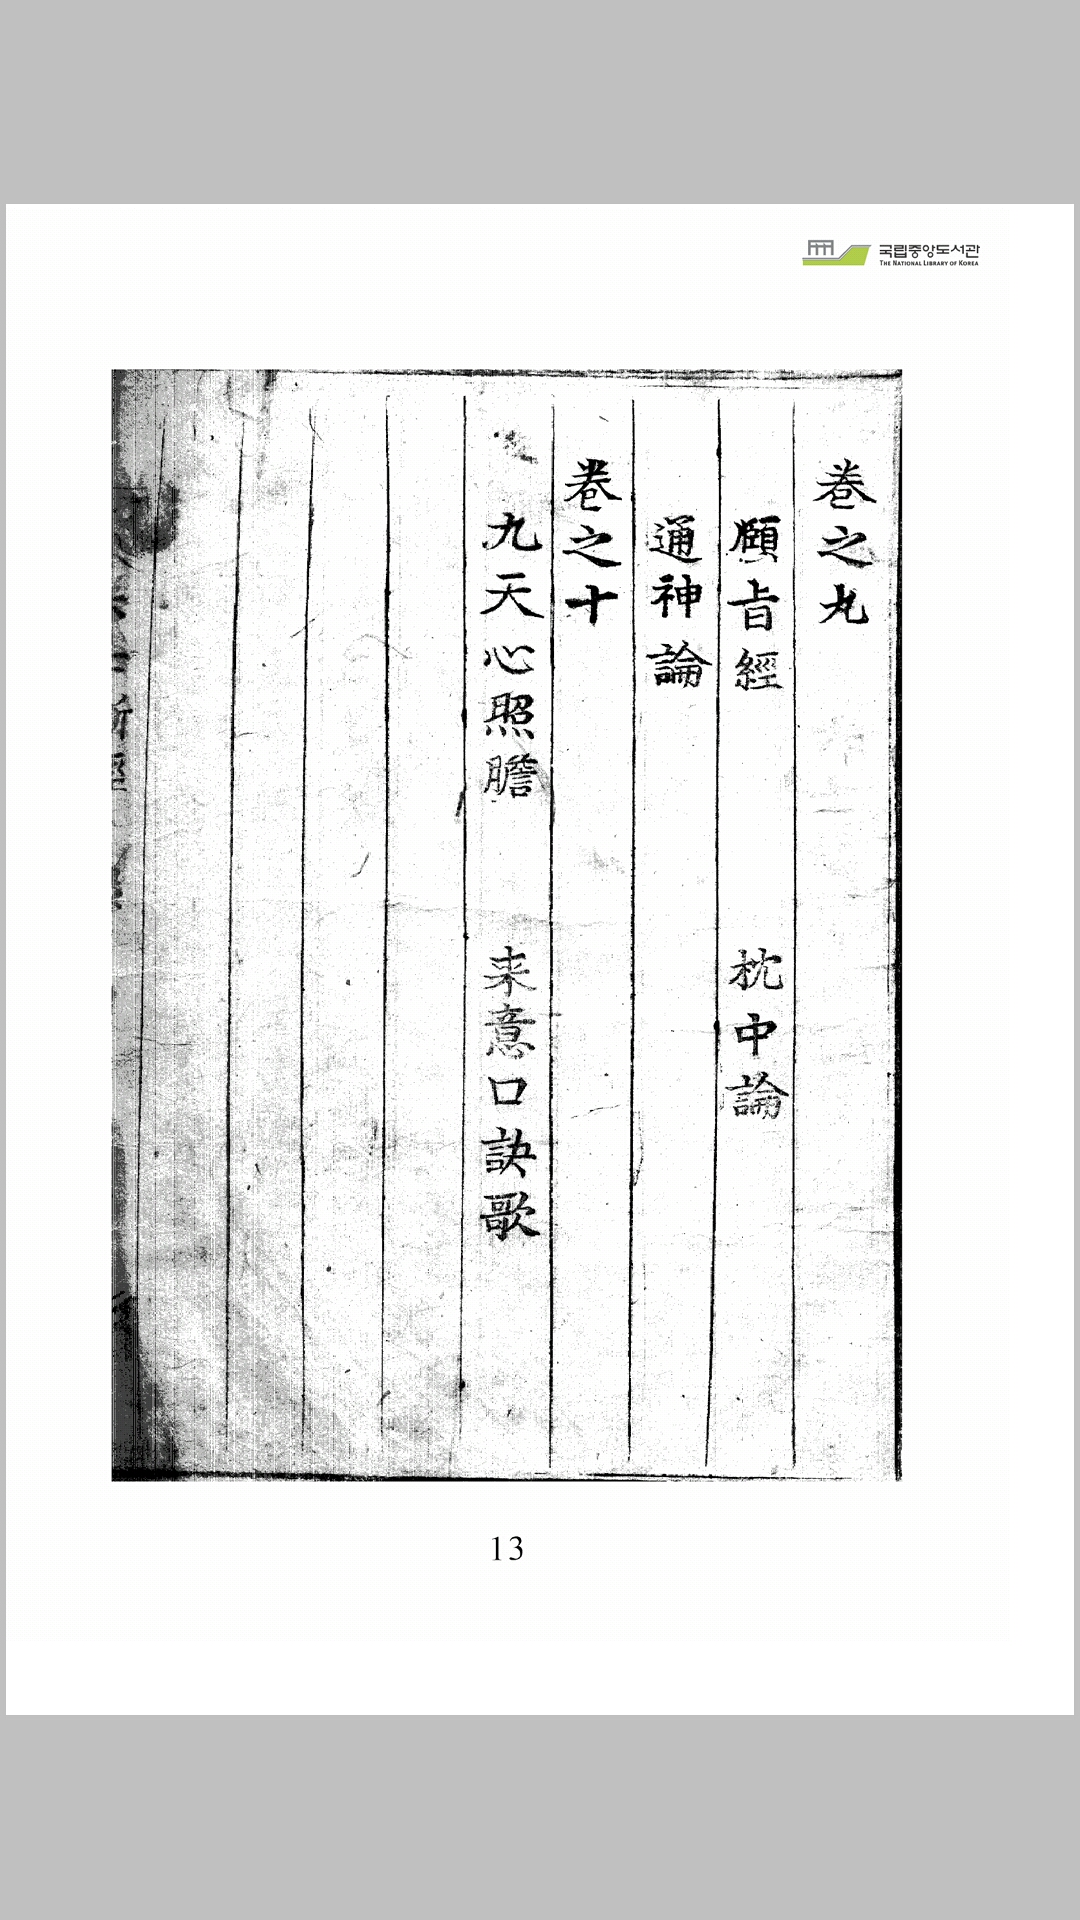 국립중앙도서관
THE NATIONAL LIBRARY OF KOREA
卷之九
頤旨經 枕中論
通神論
卷之十
九天心照膽 来意口訣歌
13